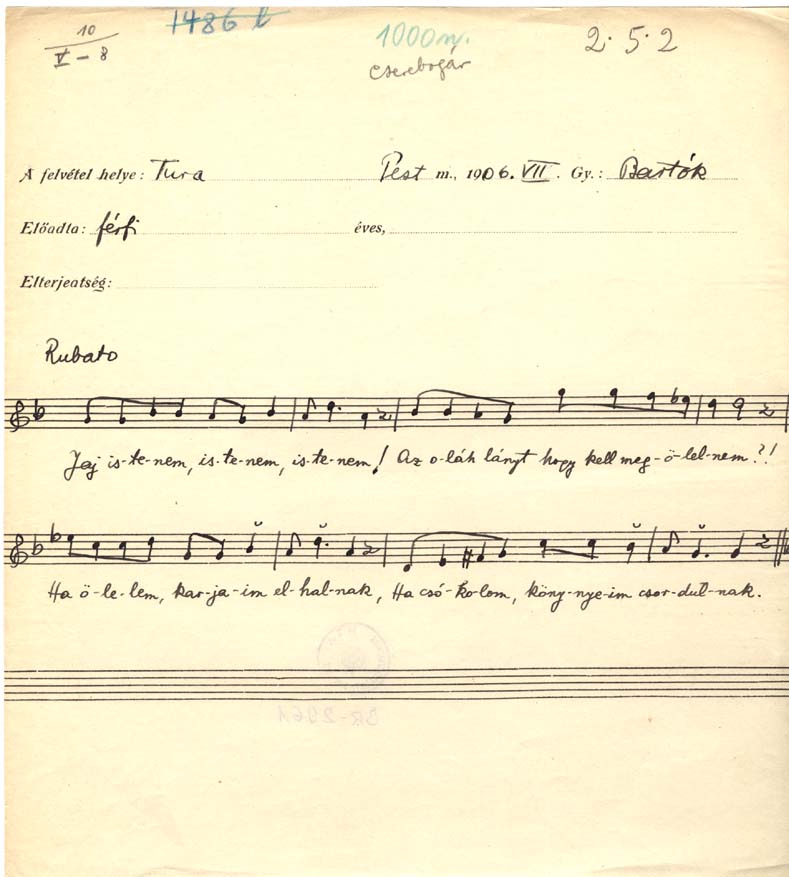 10
V – 8
1486 b
1000 ny.
Cserebogár
2. 5. 2
A felvétel helye: Tura Pest m., 1906. VII. Gy.: Bartók
Előadta: férfi éves,
Elterjedtség:
Rubato
Jej is-te-nem, is-te-nem, is-te-nem! Az o-láh lányt hogy kell meg-ö-lel-nem?!
Ha ö-le-lem, kar-ja-im el-hal-nak, Ha csó-ko-lom, köny-nye-im csor-dul-nak.
BR-2961